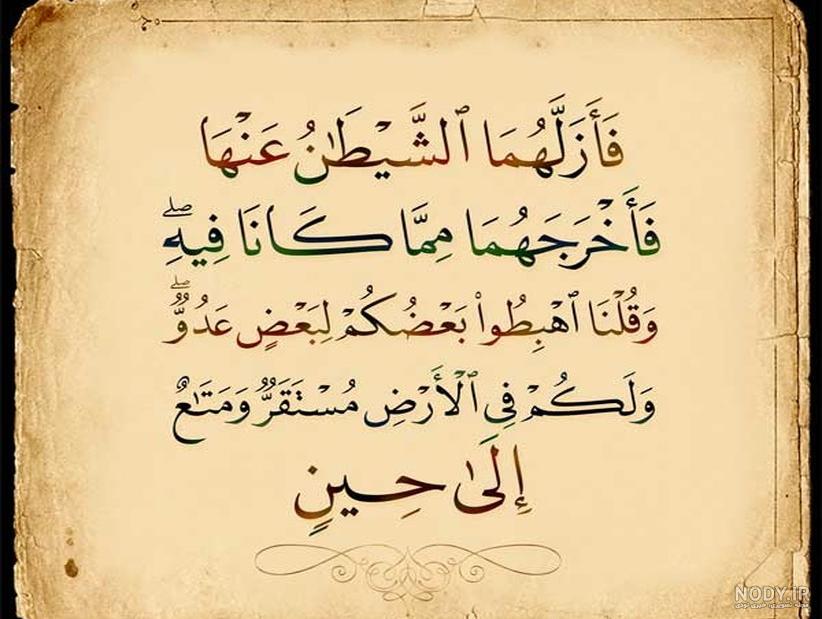 فَأَزَلَّهُمَا ٱلشَّيْطَٰنُ عَنْهَا
فَأَخْرَجَهُمَا مِمَّا كَانَا فِيهِ ۖ
وَقُلْنَا ٱهْبِطُوا۟ بَعْضُكُمْ لِبَعْضٍ عَدُوٌّ ۖ
وَلَكُمْ فِي ٱلْأَرْضِ مُسْتَقَرٌّ وَمَتَٰعٌ
إِلَىٰ حِينٍ
NODY.IR